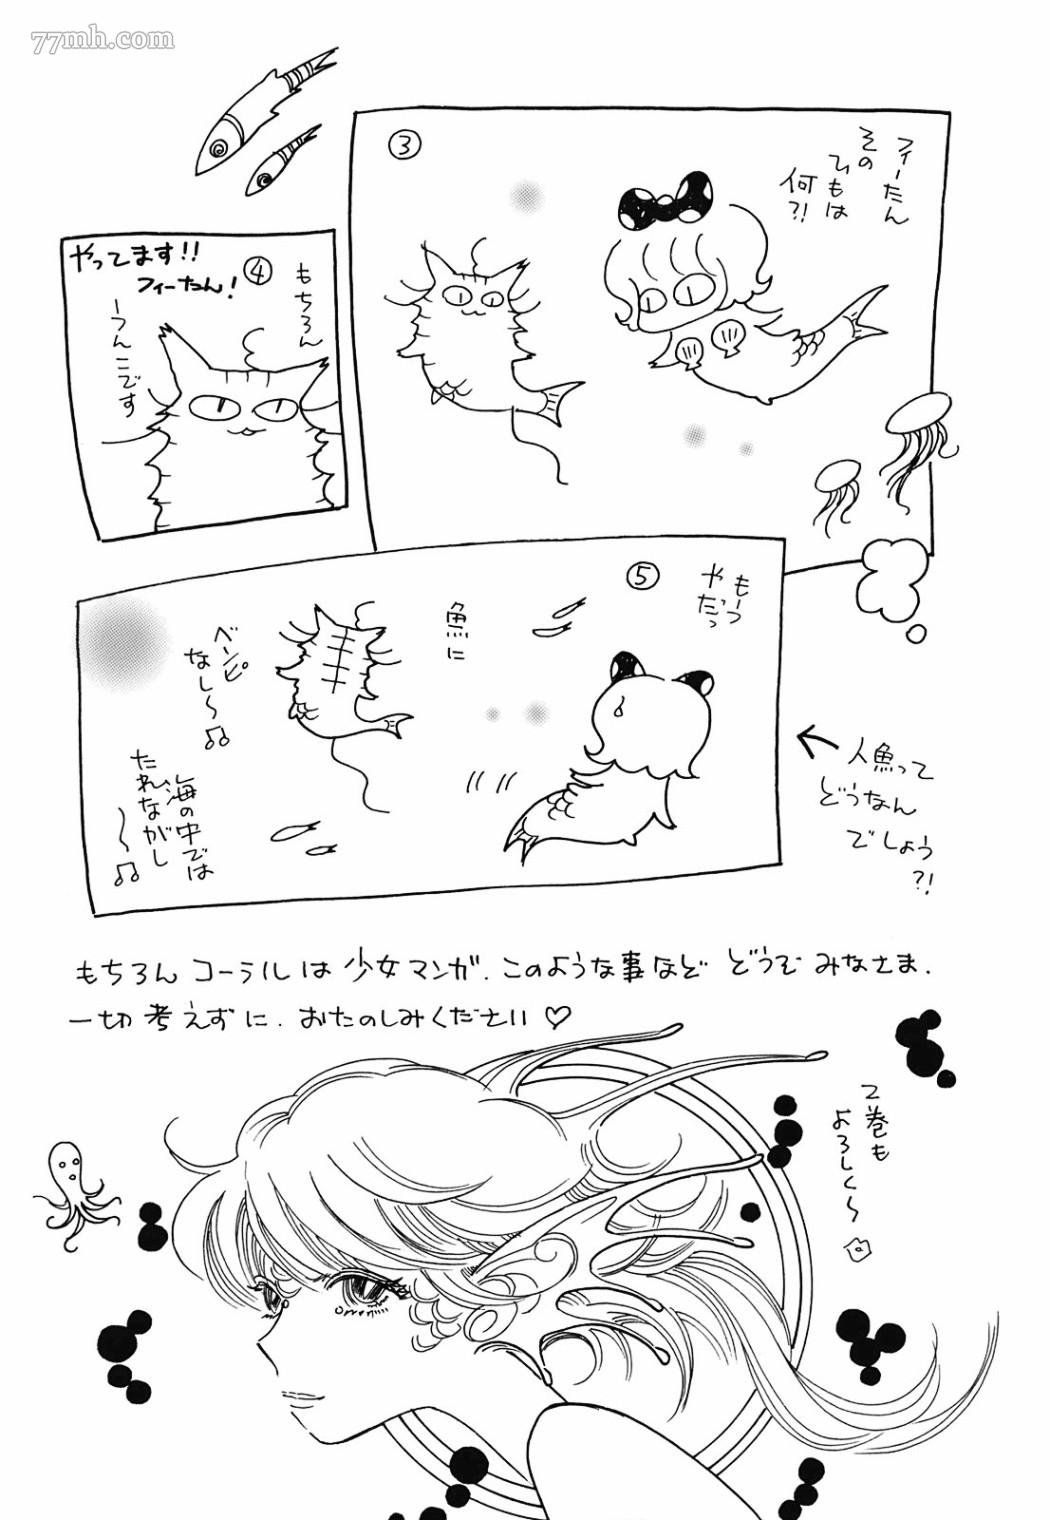 77mh.com
③
フィーたん
その
ひもは
何?!
④
やってます!!
フィーたん!
もちろん
ーうんこです
⑤
もーっ
やだっ
魚に
ベンピ
なし〜♫
海の中では
たれながし
〜♫
人魚って
どうなん
でしょう
?!
もちろん コーラルは 少女マンガ. このような事など どうぞ みなさま.
一切 考えずに. おたのしみください♡
2巻も
よろしく〜